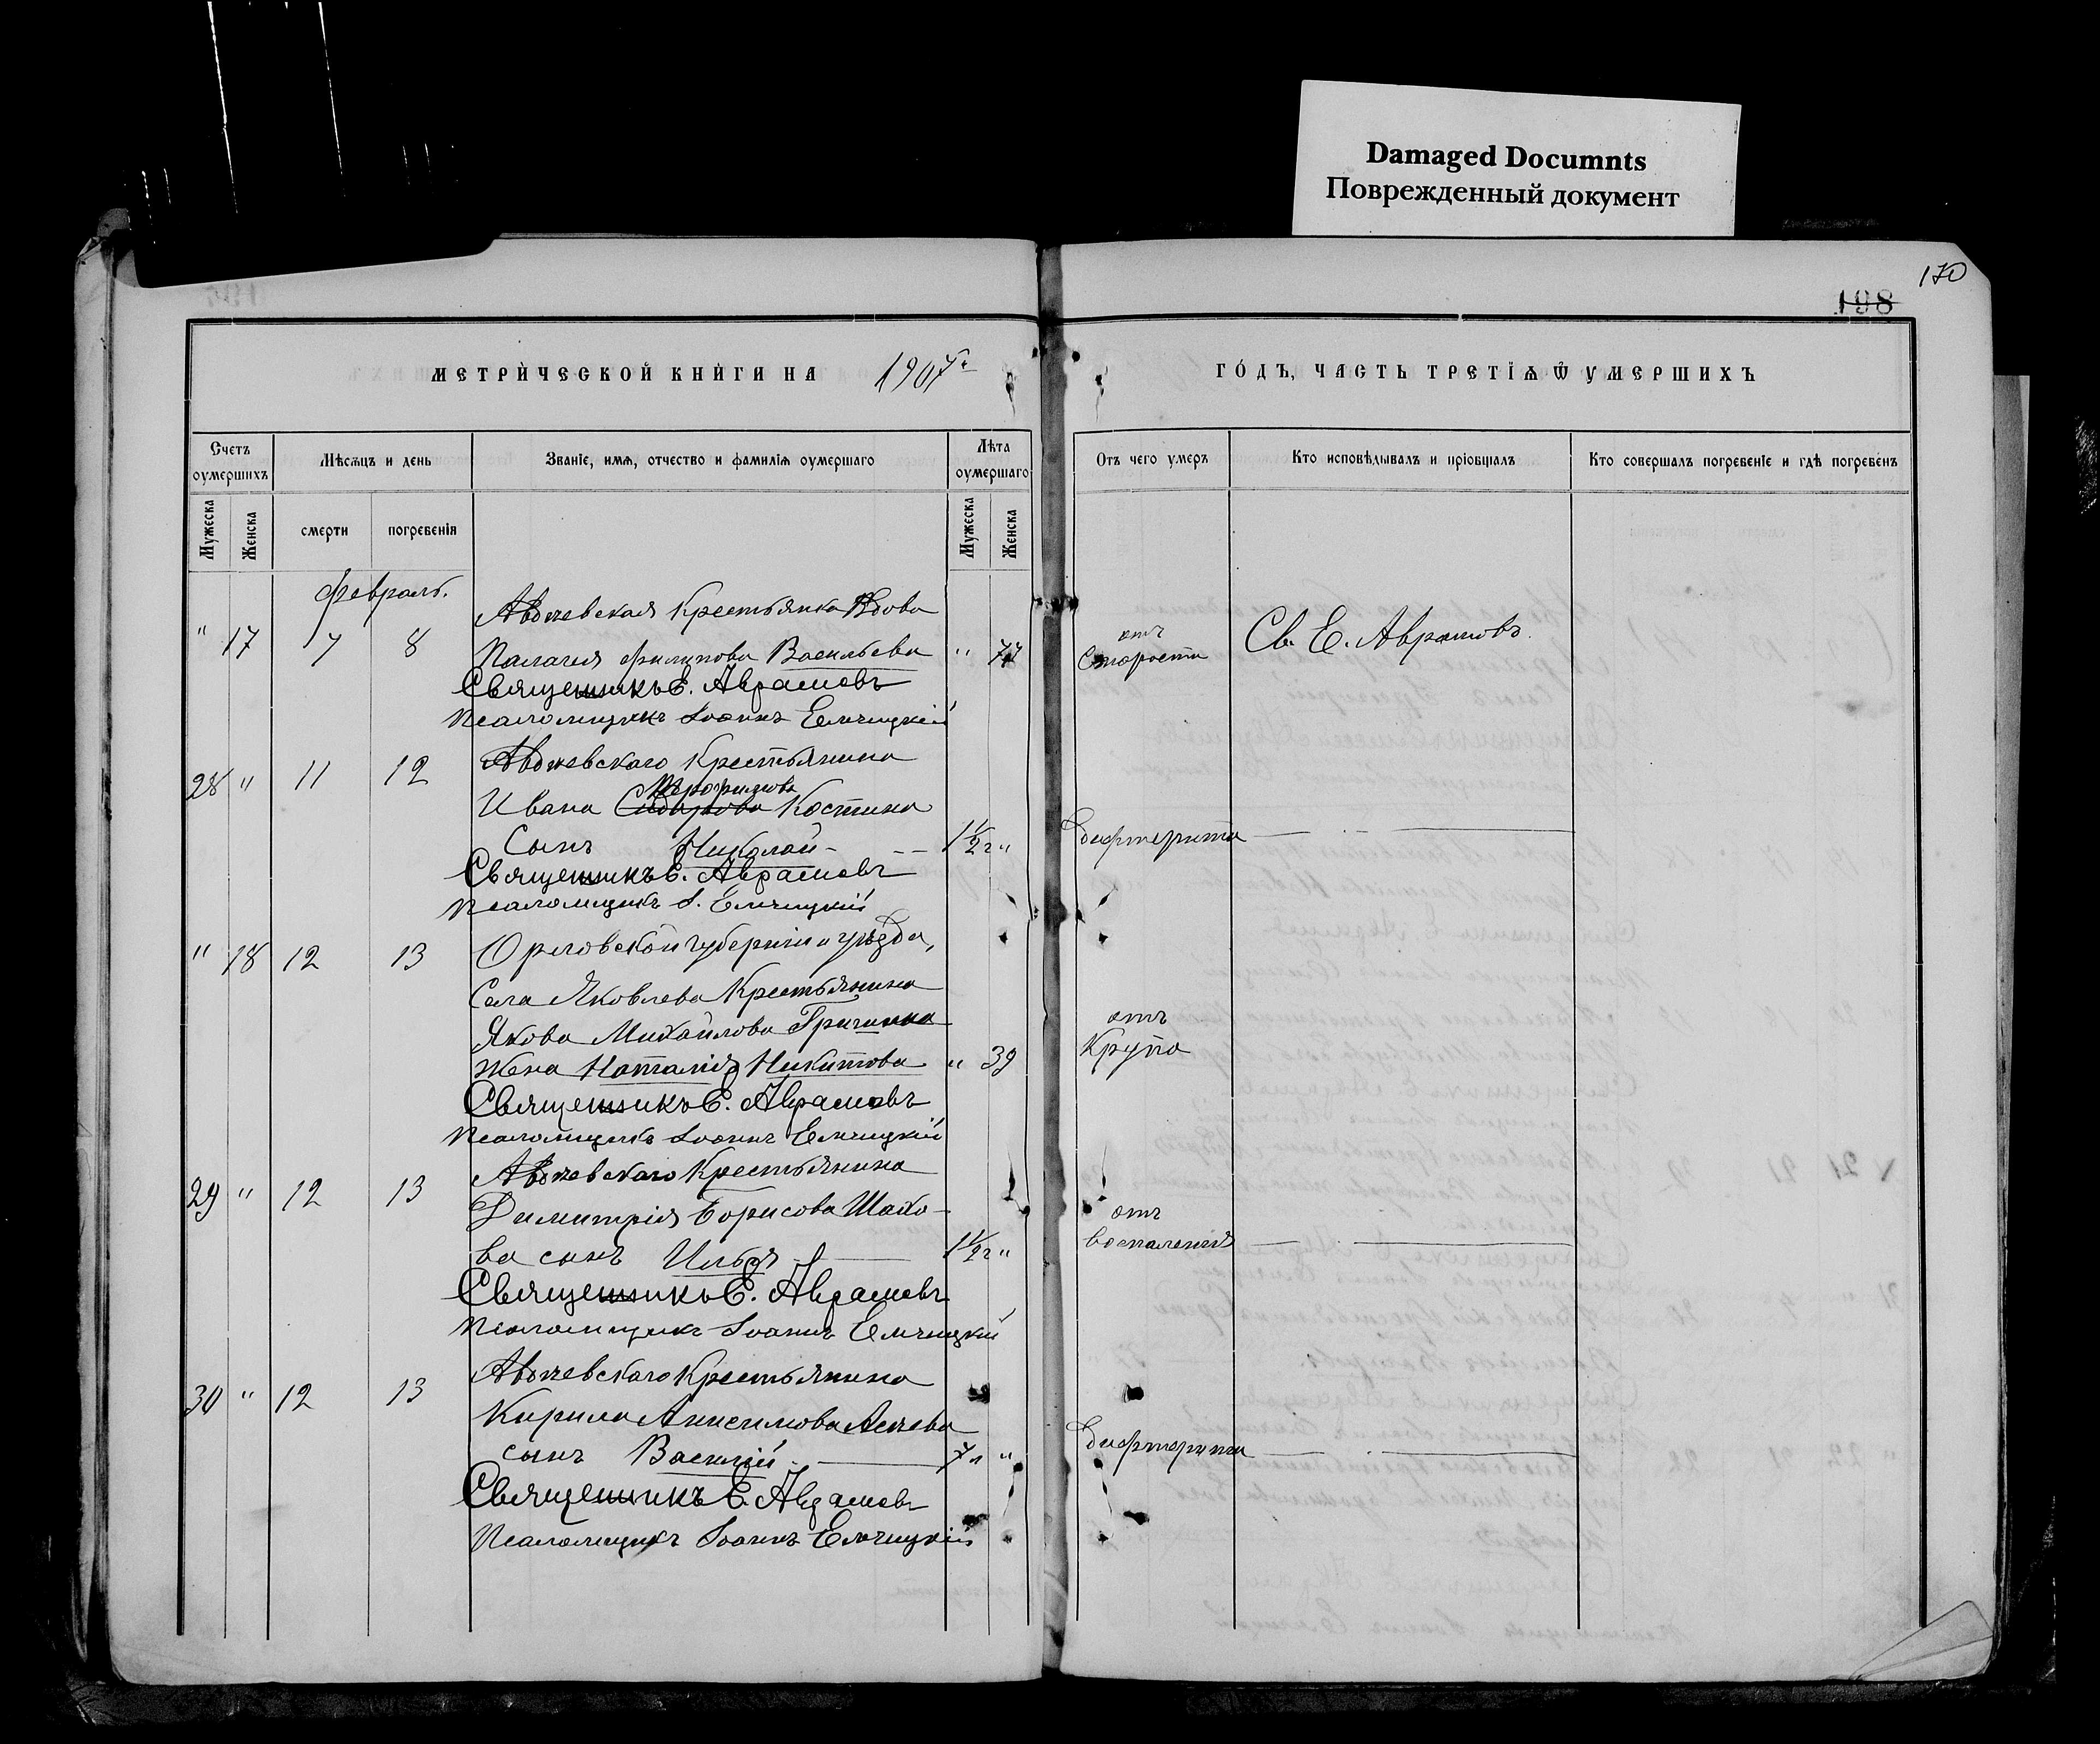 Damaged Documnts
Поврежденный документ
170
198
МЕТРИЧЕСКОЙ КНИГИ НА 1907 г.
ГОДЪ, ЧАСТЬ ТРЕТІЯ Ѿ УМЕРШИХЪ
Счетъ оумершихъ
Мѣсяцъ и день
Званіе, имя, отчество и фамилія оумершаго
Лѣта оумершаго
Отъ чего умеръ
Кто исповѣдывалъ и пріобщалъ
Кто совершалъ погребеніе и гдѣ погребенъ
Мужеска
Женска
смерти
погребенія
Мужеска
Женска
Февраль.
Крестьянка Вдова
" 17 7 8 Палагея Филипова Васильева " 77 отъ Старости Св. Е. Аврамовъ.
Священникъ Е. Аврамовъ
Псаломщикъ Іоаннъ Елчицкій
28 " 11 12 Крестьянина
Ивана Костина
Сынъ Николай 1½ г " дифтерита
Священникъ Е. Аврамовъ
Псаломщикъ І. Елчицкій
" 18 12 13 Орловской губерніи и уѣзда,
Села Яковлева Крестьянина
Якова Михайлова Гричина
жена Наталія Никитова " 39 отъ Крупа
Священникъ Е. Аврамовъ
Псаломщикъ Іоаннъ Елчицкій
29 " 12 13 Крестьянина
Димитрія Борисова Шахо-
ва сынъ Илья 1½ г " отъ воспаленія
Священникъ Е. Аврамовъ
Псаломщикъ Іоаннъ Елчицкій
30 " 12 13 Крестьянина
Кирила Анисимова
сынъ Василій 7 л " дифтерита
Священникъ Е. Аврамовъ
Псаломщикъ Іоаннъ Елчицкій